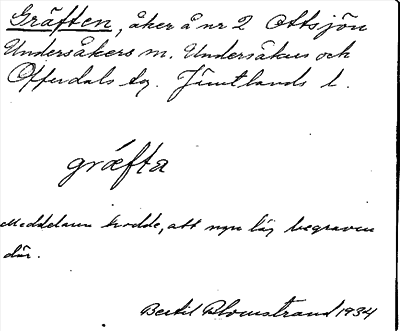 Gräften, åker å nr 2 Ottsjön
Undersåkers sn. Undersåkers och
Offerdals tg. Jämtlands l.
græfta
Meddelaren trodde, att ngn låg begraven
där.
Bertil Blomstrand 1934